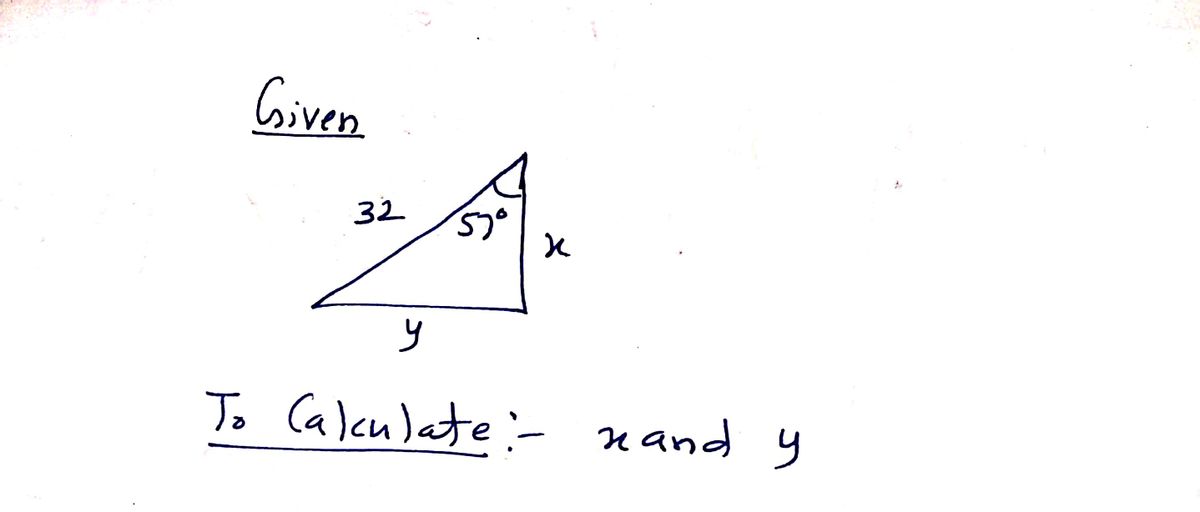 Given
32
57°
x
y
To Calculate :- x and y